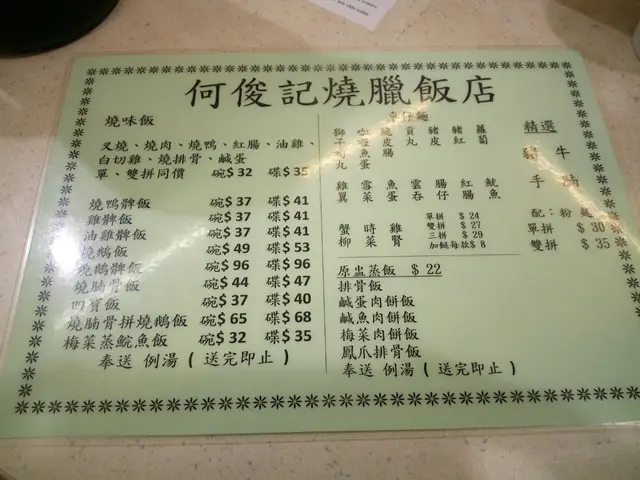 何俊記燒臘飯店
燒味飯
叉燒、燒肉、燒鴨、紅腸、油雞、
白切雞、燒排骨、鹹蛋
單、雙拼同價 碗$ 32 碟$ 35
燒鴨髀飯 碗$ 37 碟$ 41
雞髀飯 碗$ 37 碟$ 41
油雞髀飯 碗$ 37 碟$ 41
燒鵝飯 碗$ 49 碟$ 53
燒鵝髀飯 碗$ 96 碟$ 96
燒腩骨飯 碗$ 44 碟$ 47
四寶飯 碗$ 37 碟$ 40
燒腩骨拼燒鵝飯 碗$ 65 碟$ 68
梅菜蒸鯇魚飯 碗$ 32 碟$ 35
奉送 例湯 ( 送完即止 )
車仔麵
獅 咖 豬 貢 豬 豬 蘿
子 喱 皮 丸 皮 紅 蔔
狗 魚 腸
丸 蛋
雞 雪 魚 雲 腸 紅 魷
翼 菜 蛋 吞 仔 腸 魚
蟹 時 雞
柳 菜 腎
單拼 $ 24
雙拼 $ 27
三拼 $ 29
加餸每款$ 8
原盅蒸飯 $ 22
排骨飯
鹹蛋肉餅飯
鹹魚肉餅飯
梅菜肉餅飯
鳳爪排骨飯
奉送 例湯 ( 送完即止 )
精選
豬 牛
手
配：粉 麵
單拼 $ 30
雙拼 $ 35